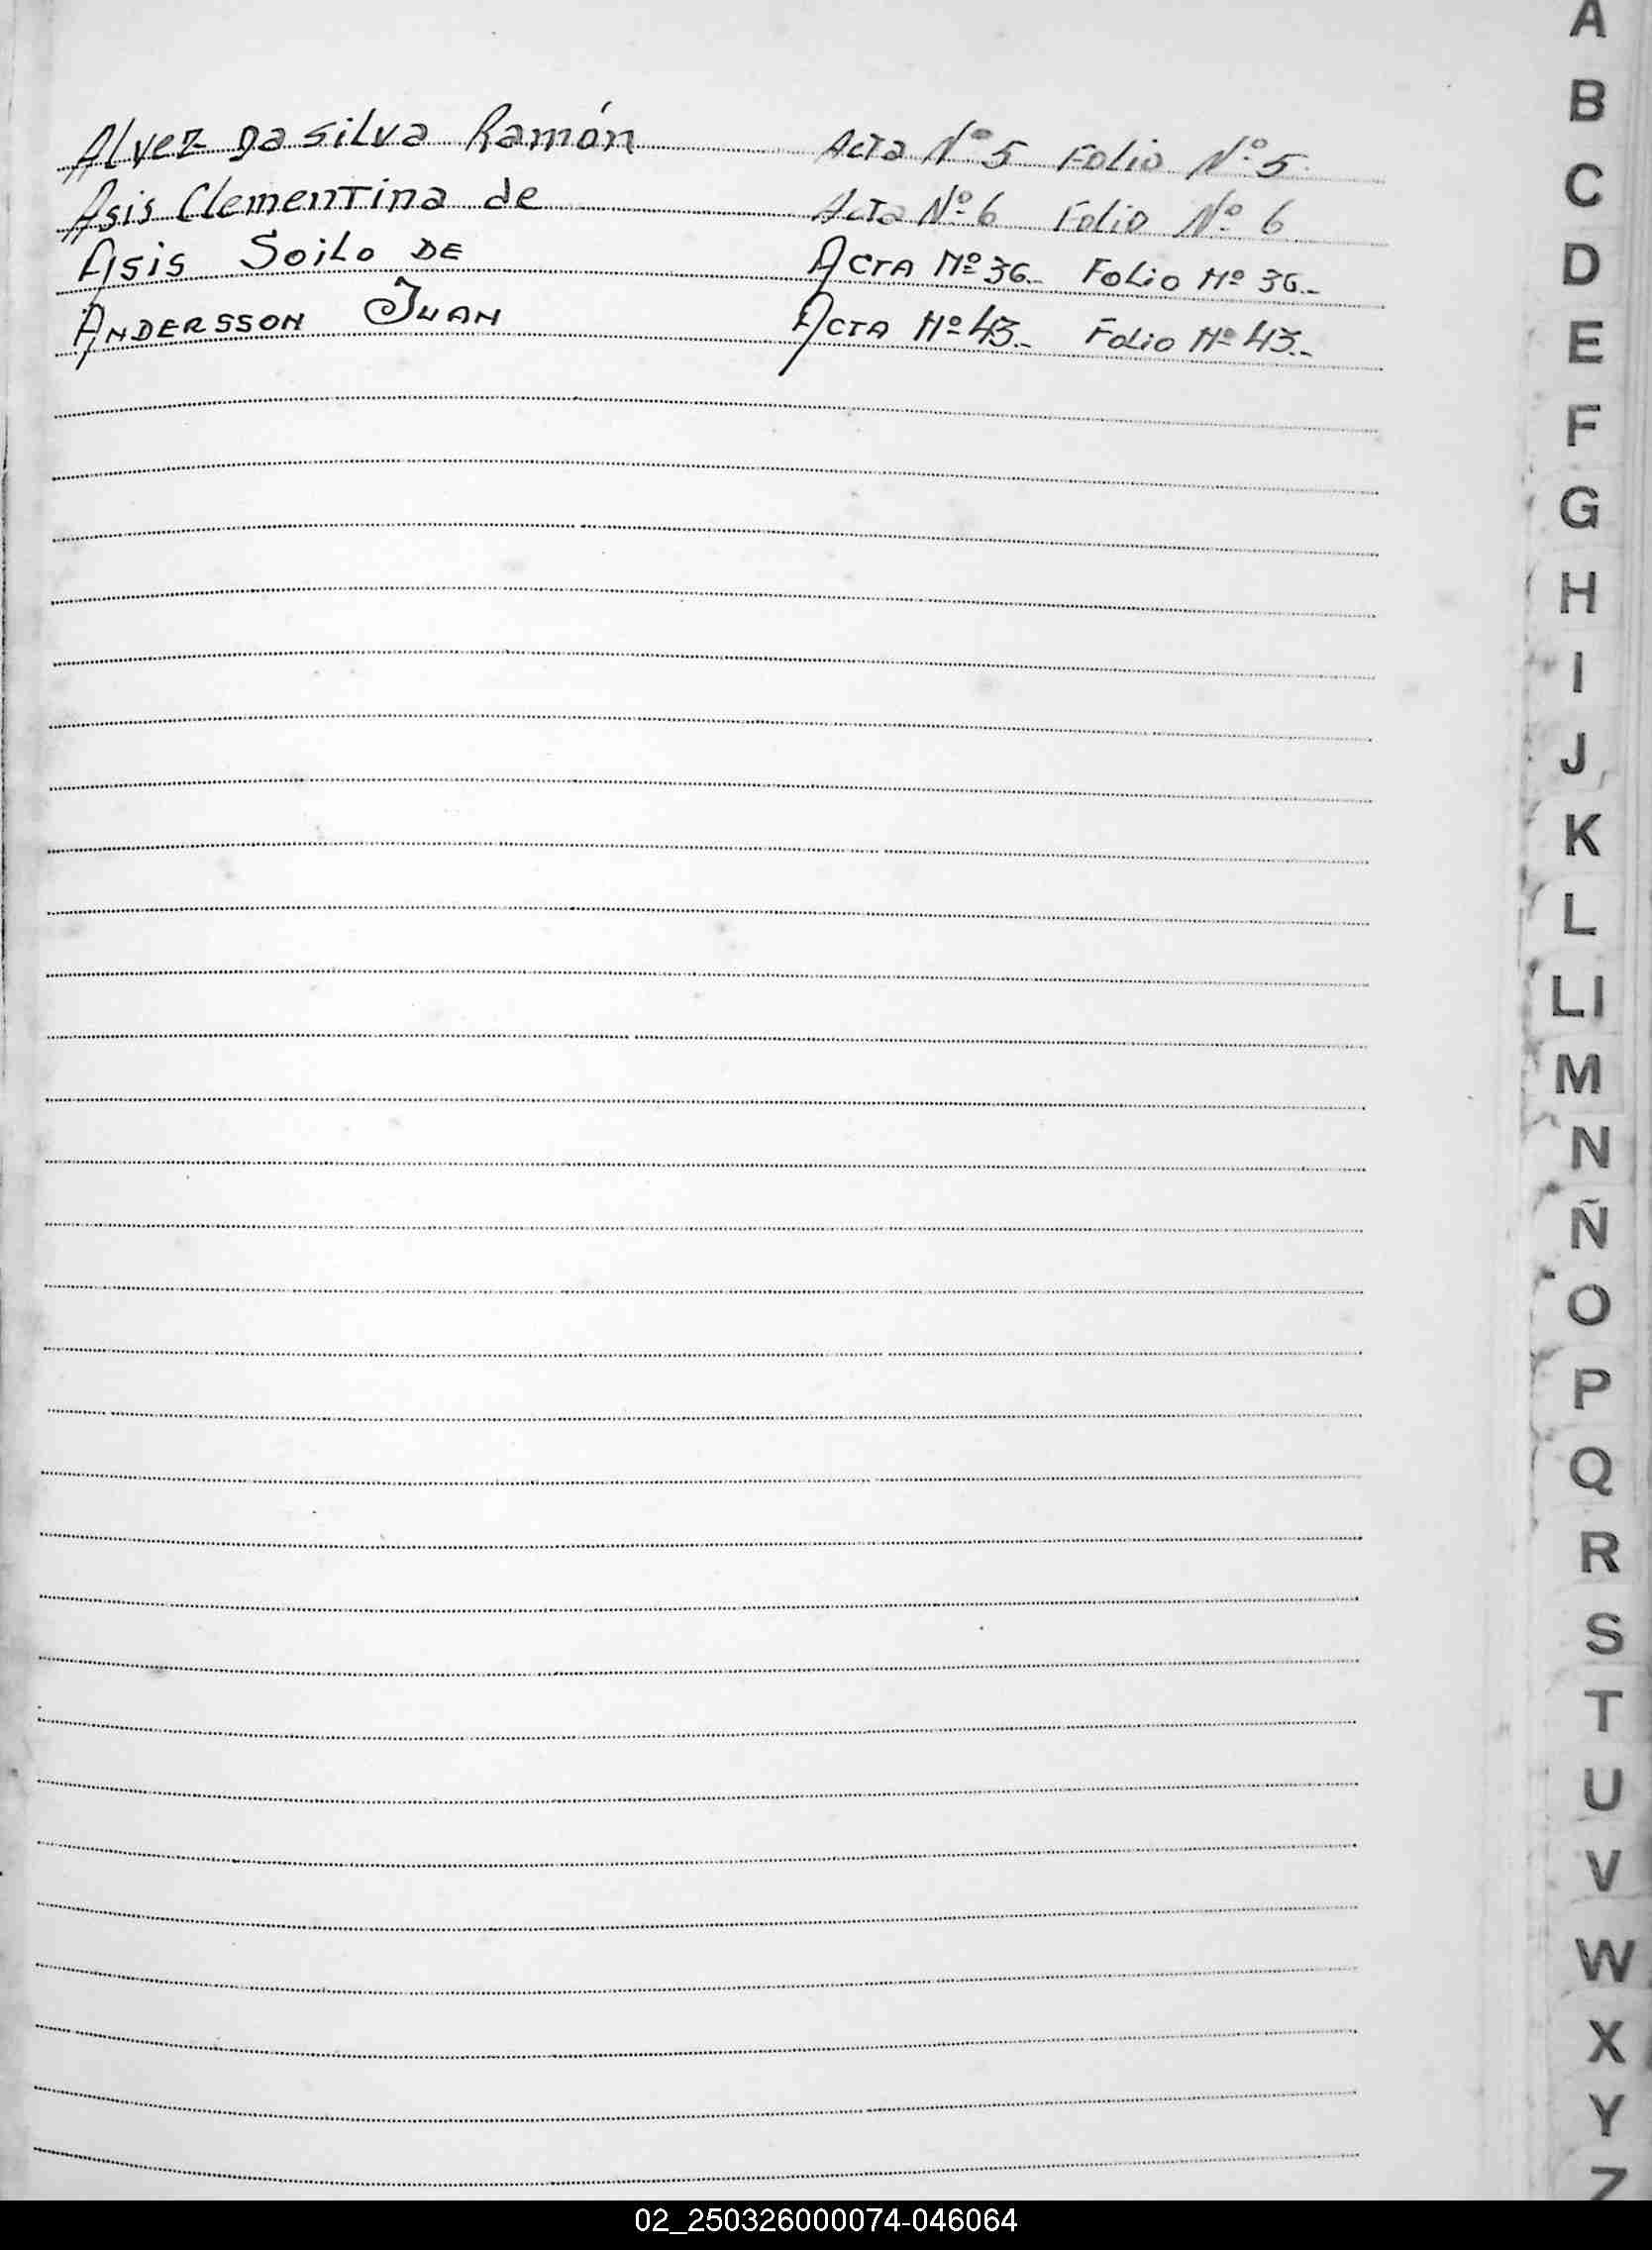 Alvez Da Silva Ramón Acta Nº 5 Folio Nº 5
Asis Clementina de Acta Nº 6 Folio Nº 6
Asis Soilo DE Acta Nº 36.- Folio Nº 36.-
ANDERSSON JUAN Acta Nº 43.- Folio Nº 43.-
A
B
C
D
E
F
G
H
I
J
K
L
Ll
M
N
Ñ
O
P
Q
R
S
T
U
V
W
X
Y
Z
02_250326000074-046064